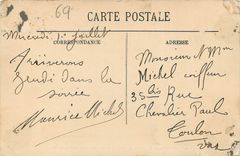 69
CARTE POSTALE
CORRESPONDANCE
ADRESSE
Mercredi 1er Juillet
Arriverons
Jeudi dans la
soirée
Maurice Michel
Monsieur & Mme
Michel coiffeur
35 bis Rue
Chevalier Paul
Toulon
Var